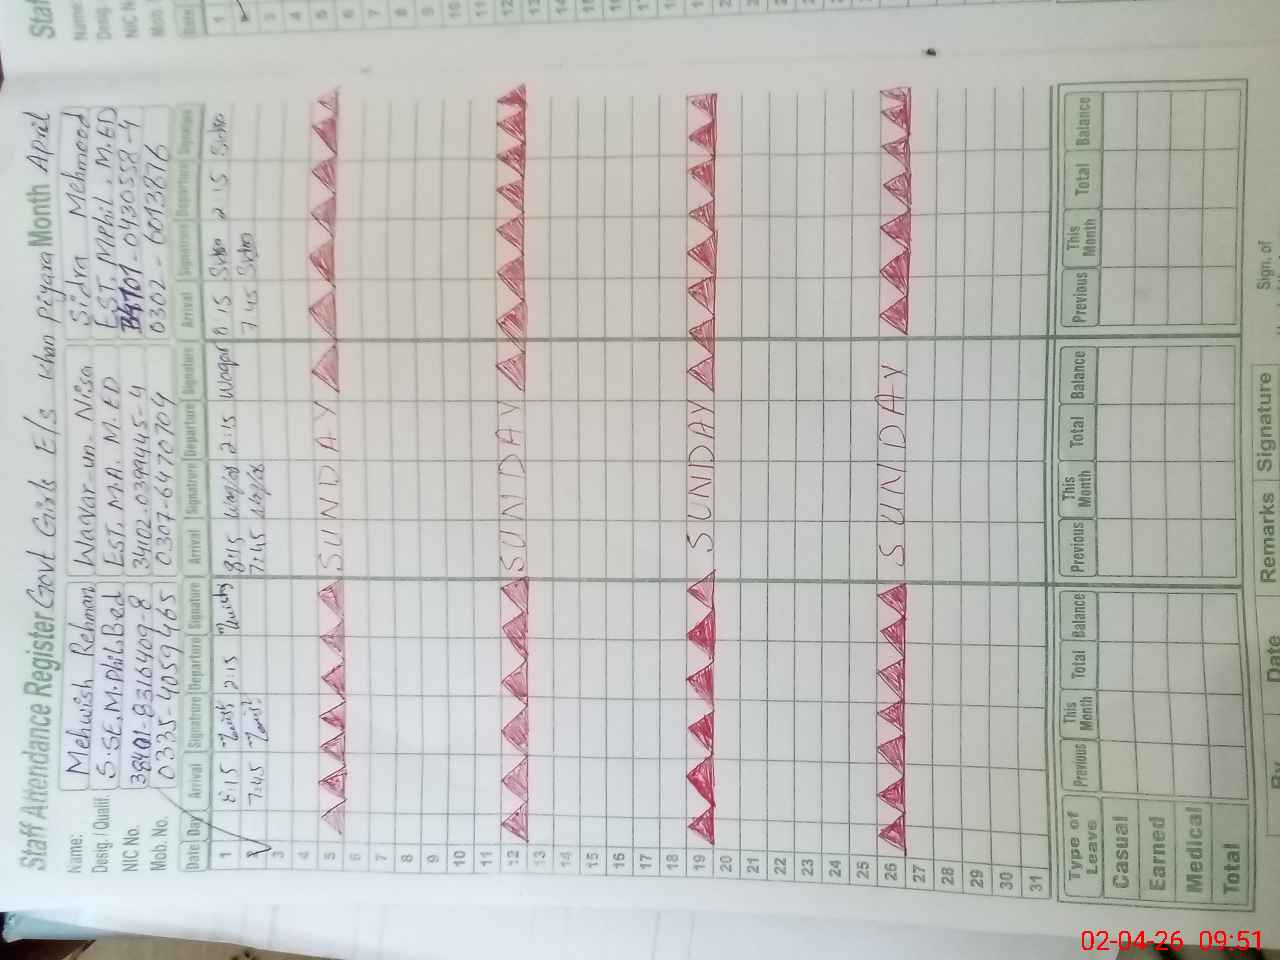 Staff Attendance Register Govt Girls E/S Khan Piyara Month April
Name: Mehwish Rehman Waqar-un-Nisa Sidra Mehmood
Desig. / Qualif. S.SE, M.Phil, B.ed EST, M.A. M.ED EST, MPhil, M.ED
NIC No. 38401-8316409-8 3402.0399445-4 -0430558-4
Mob. No. 0335-4059465 0307-6470704 0302-6013876
Date Day Arrival Signatrure Departure Signature Arrival Signatrure Departure Signature Arrival Signatrure Departure Signature
1 8:15 2:15 8:15 2:15 Waqar 8:15 2:15
2 7:45 7:45 7:45
3
4
5 SUNDAY
6
7
8
9
10
11
12 SUNDAY
13
14
15
16
17
18
19 SUNDAY
20
21
22
23
24
25
26 SUNDAY
27
28
29
30
31
Type of Leave Previous This Month Total Balance Previous This Month Total Balance Previous This Month Total Balance
Casual
Earned
Medical
Total
Date Remarks Signature
Sign. of
02-04-26 09:51